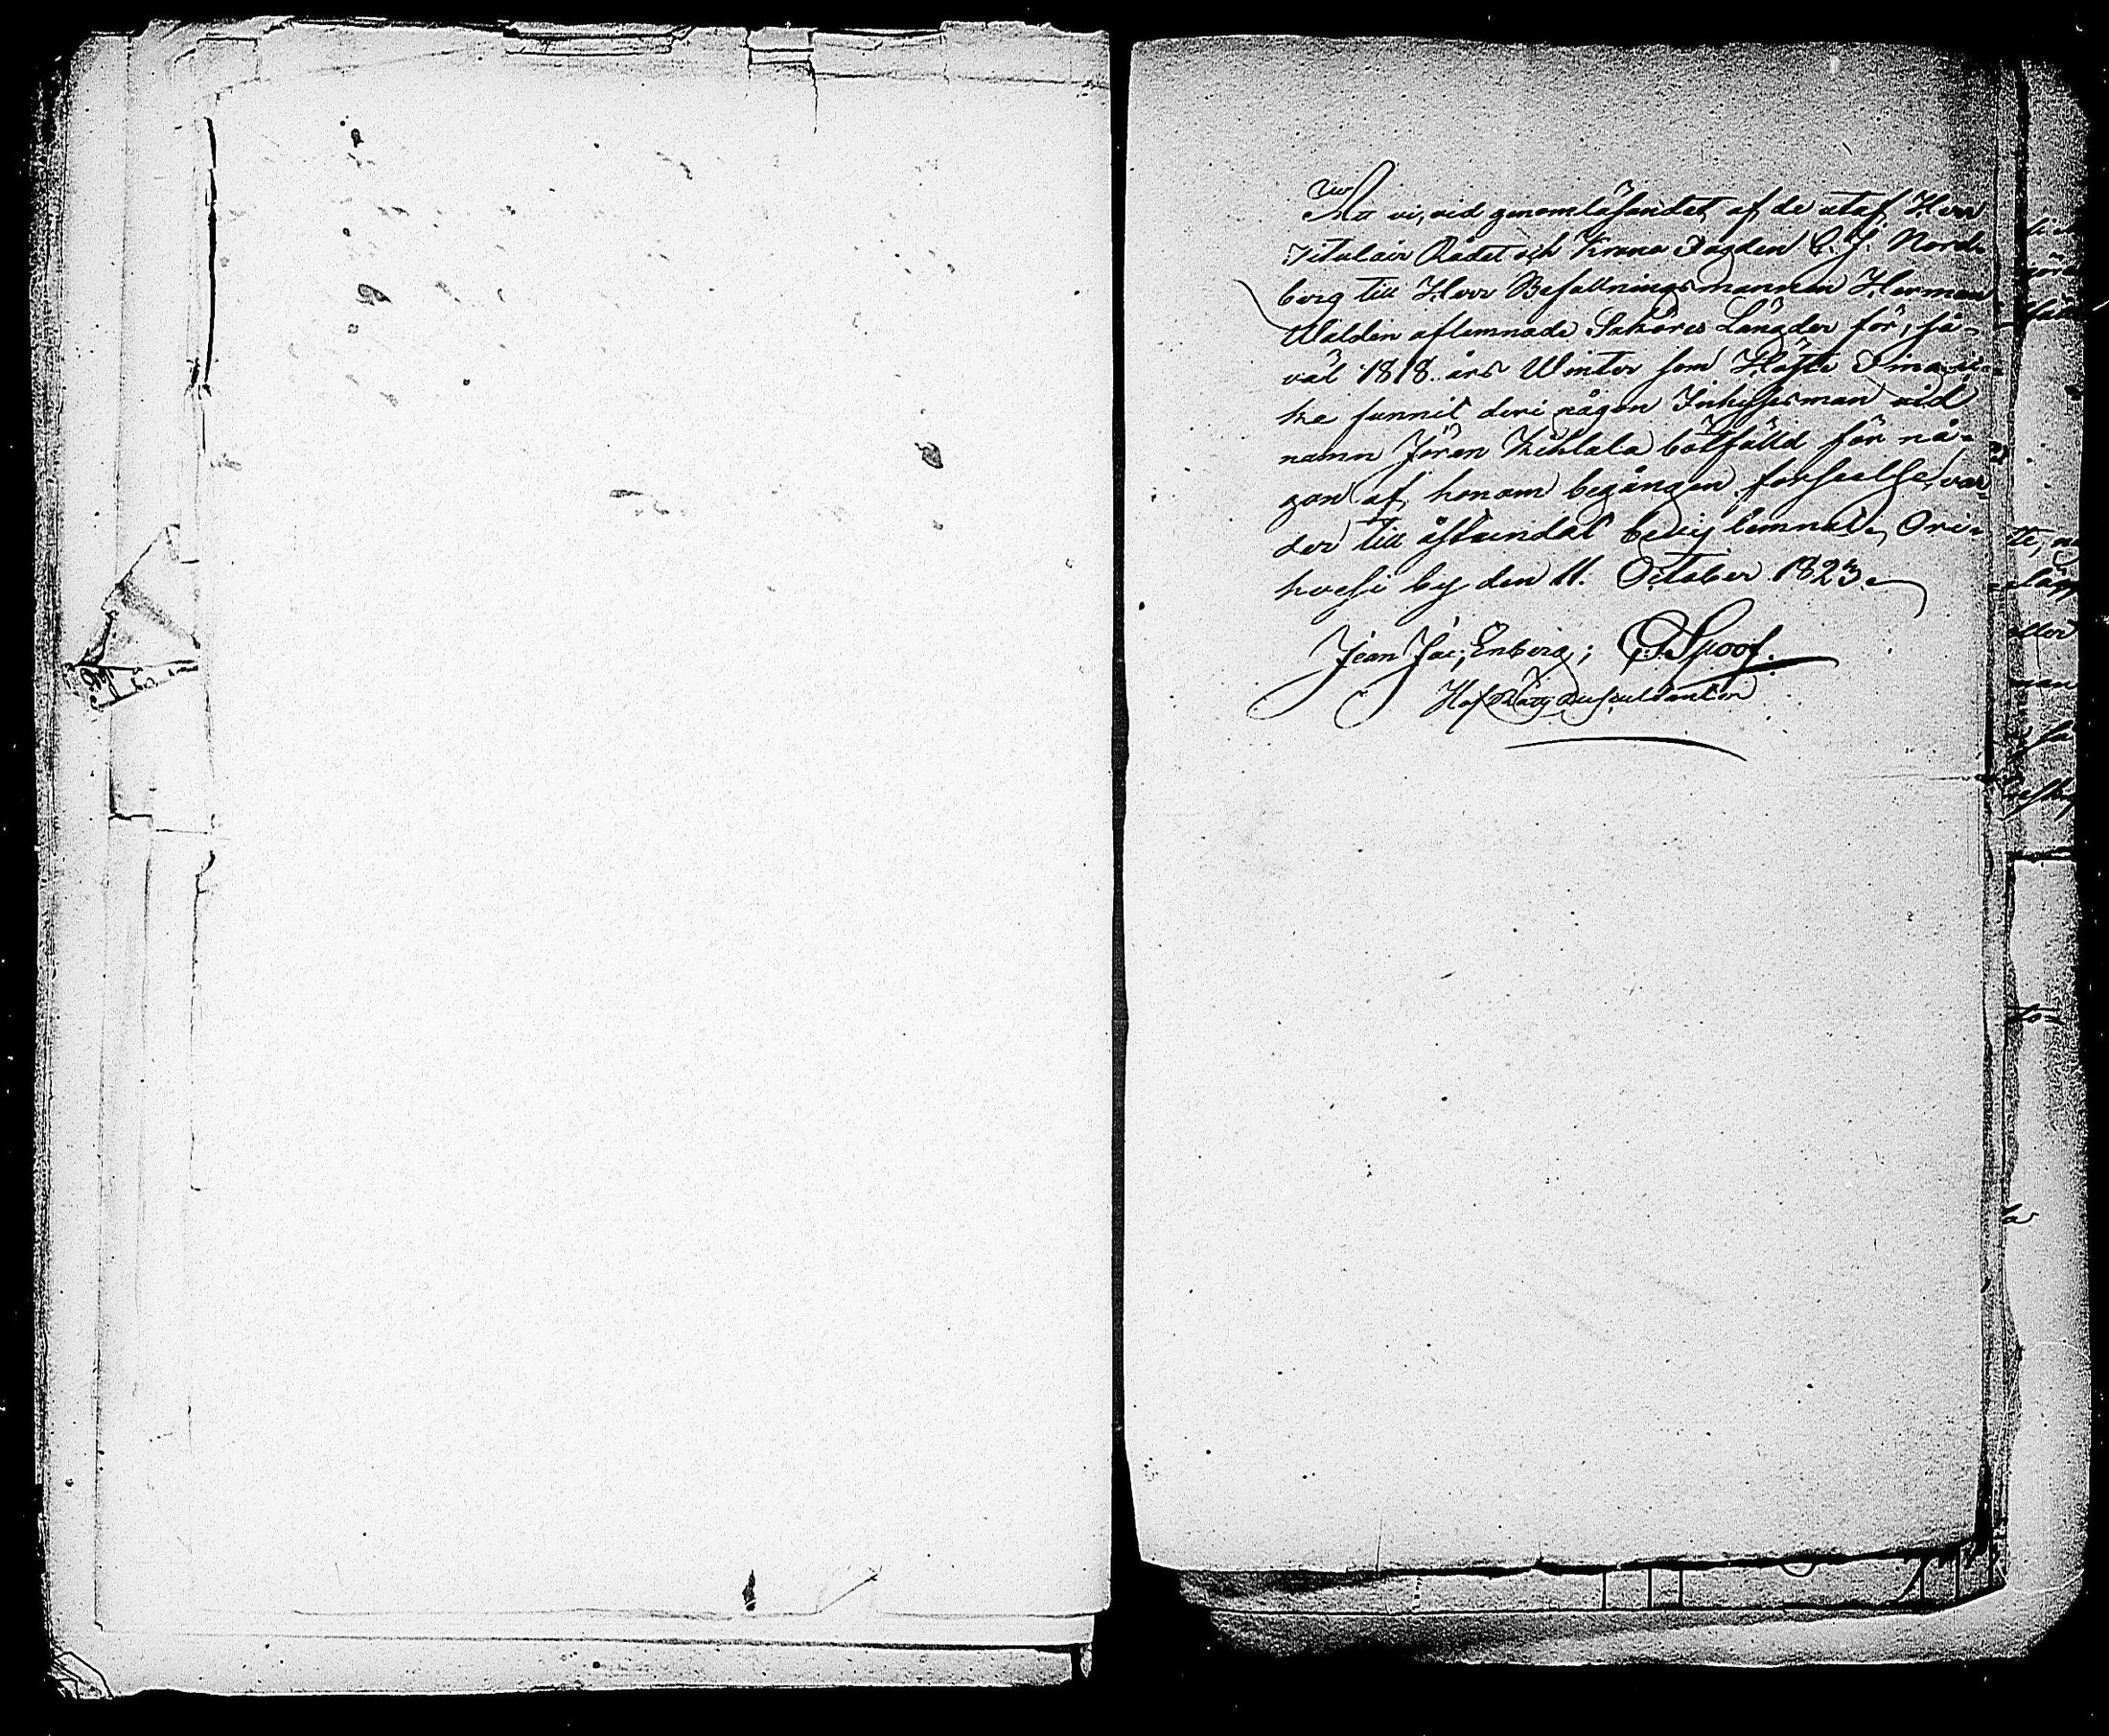 Att vi, vid genomläsandet af de utaf Herr
Titulair Rådet och Krono Fogden C. J. Nord-
berg till Herr Befallningsmannen Herman
Walden aflemnade Saköres Längder för, så-
väl 1818 års Winter som Höste Ting, ic-
ke funnit deri någon Inhysesman vid
namn Jöran Kihlala bötfälld för nå-
gon af honom begången förseelse, var-
der till åstundat bevis lemnat. Ori-
hvesi by den 11. October 1823.
Jean Jac; Enberg; Spoof.
Hof Rätts Auscultanter
tte,
eller
man